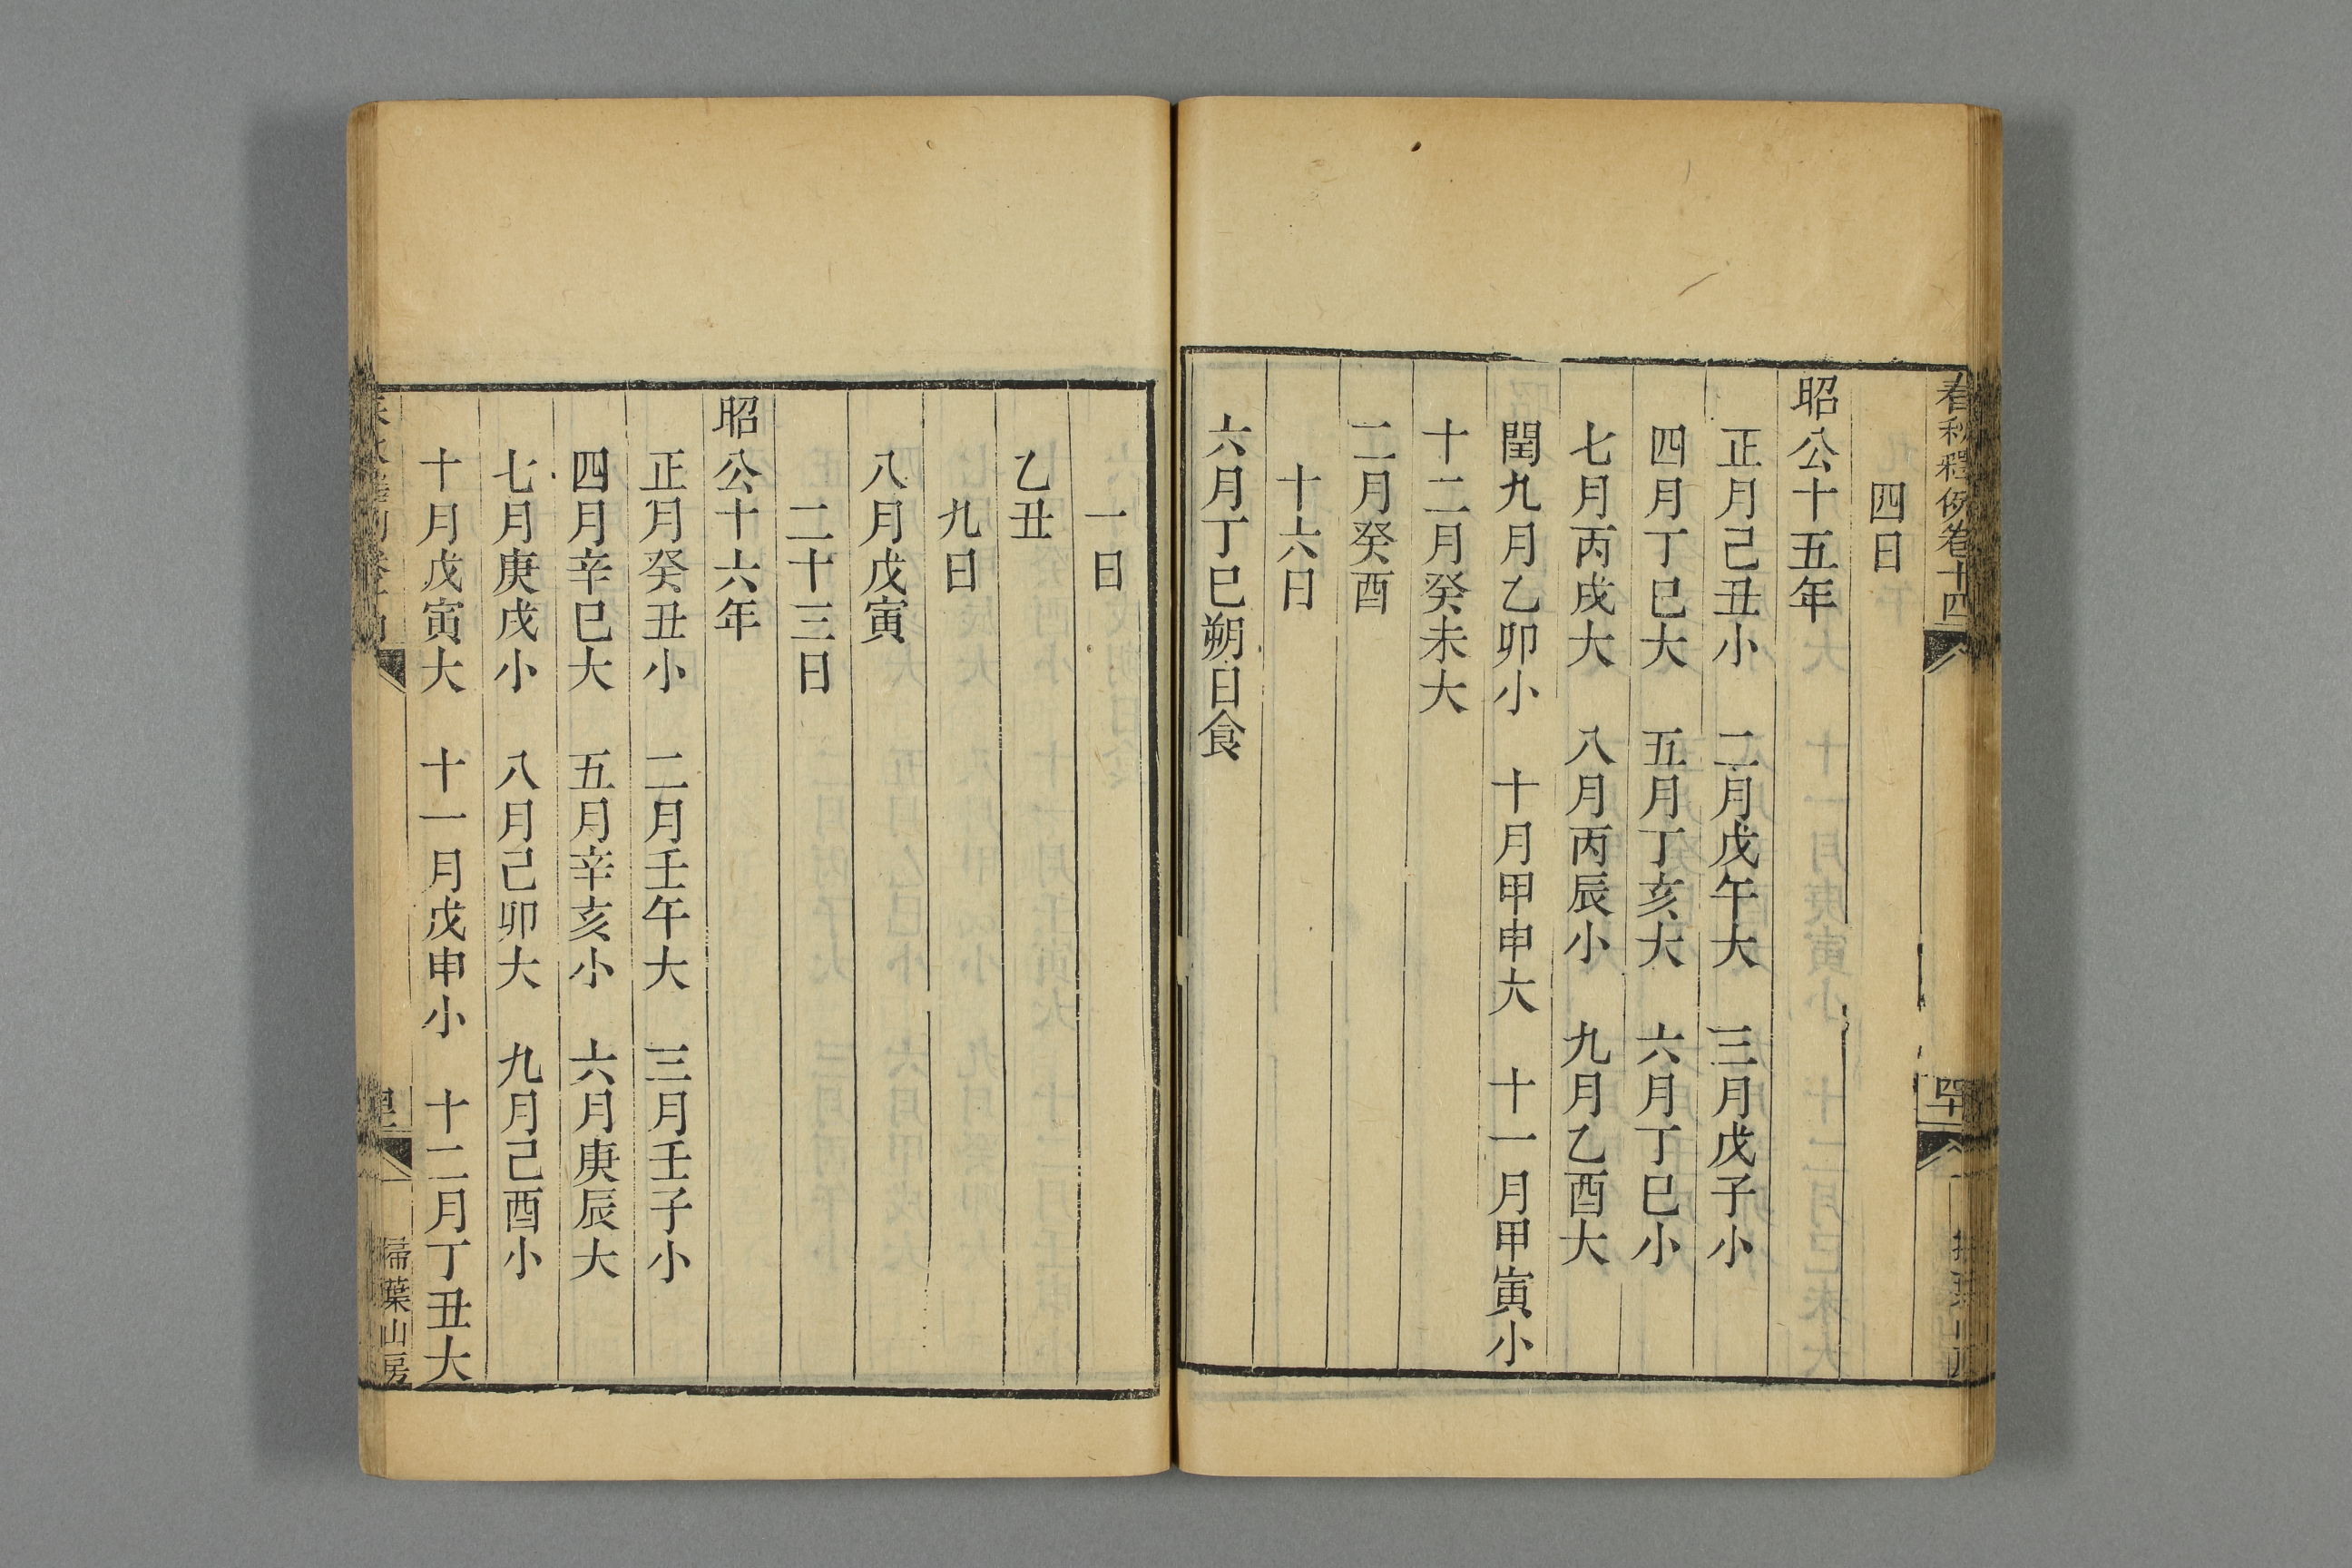 春秋釋例卷十四
四日
昭公十五年
正月己丑小　二月戊午大　三月戊子小
四月丁巳大　五月丁亥大　六月丁巳小
七月丙戌大　八月丙辰小　九月乙酉大
閏九月乙卯小　十月甲申大　十一月甲寅小
十二月癸未大
二月癸酉
十六日
六月丁巳朔日食
一日
乙丑
九日
八月戊寅
二十三日
昭公十六年
正月癸丑小　二月壬午大　三月壬子小
四月辛巳大　五月辛亥小　六月庚辰大
七月庚戌小　八月己卯大　九月己酉小
十月戊寅大　十一月戊申小　十二月丁丑大
掃葉山房